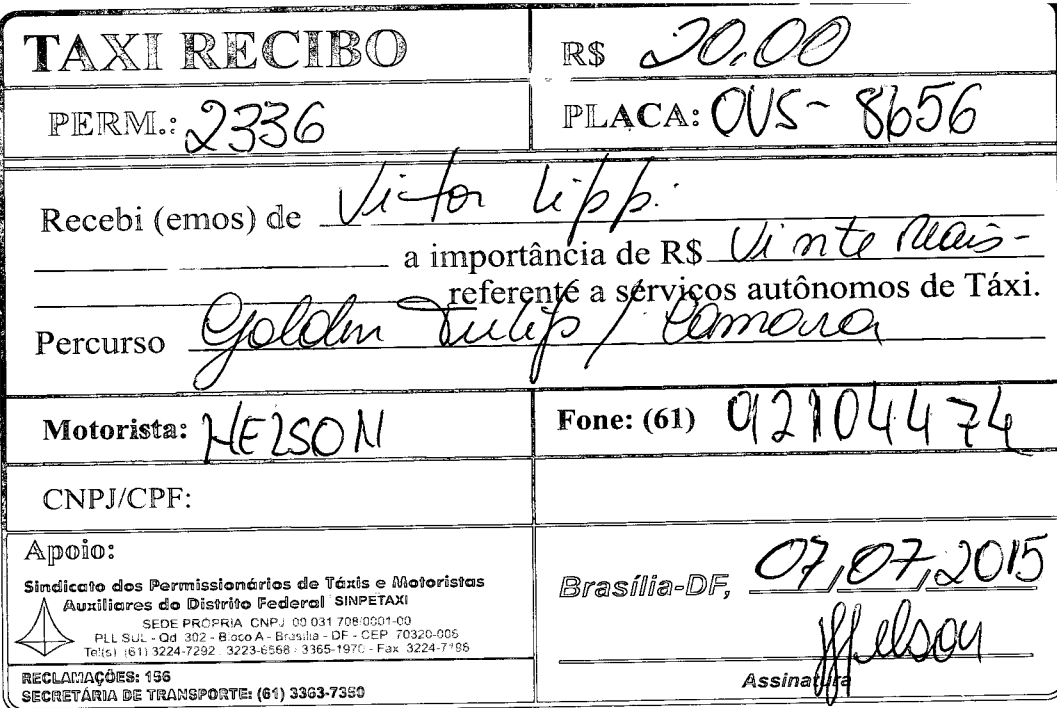 TAXI RECIBO
R$ 20.00
PERM.: 2336
PLACA: OVS-8656
Recebi (emos) de Victor Lipp.
a importância de R$ Vinte Reais-
referente a serviços autônomos de Táxi.
Percurso Golden Tulip / Camara
Motorista: NELSON
Fone: (61) 92104474
CNPJ/CPF:
Apoio:
Sindicato dos Permissionários de Táxis e Motoristas
Auxiliares do Distrito Federal SINPETAXI
SEDE PRÓPRIA CNPJ 00 031 708/0001-00
PLL SUL - Qd 302 - Bloco A - Brasília - DF - CEP 70320-006
Tel(s) (61) 3224-7292 3223-6568 3365-1970 - Fax 3224-7186
RECLAMAÇÕES: 156
SECRETÁRIA DE TRANSPORTE: (61) 3363-7350
Brasília-DF, 07,07,2015
Nelson
Assinatura